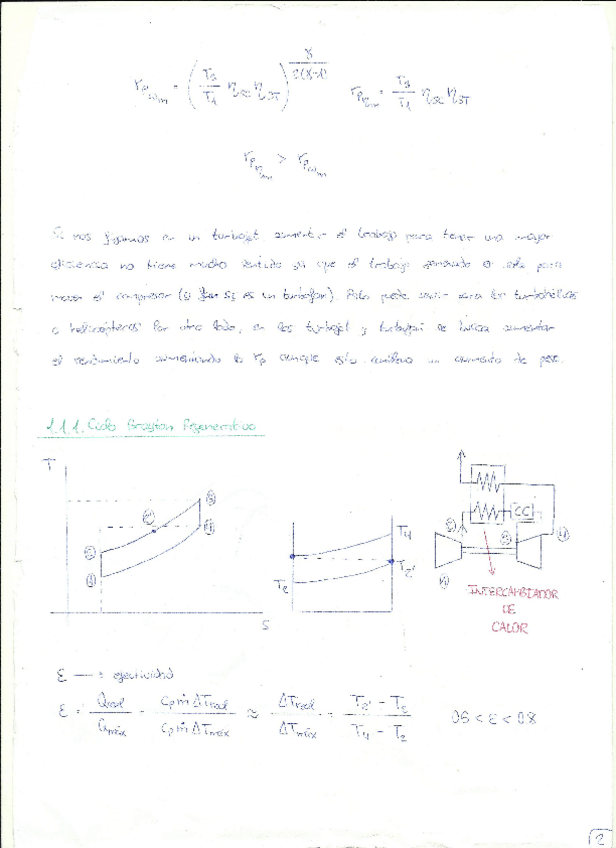 r_{p_{wm}} = (T3/T1 η_{2c} η_{3T})^{γ/2(γ-1)}   r_{p_{ηm}} = T3/T1 η_{2c} η_{3T}
r_{p_{ηm}} > r_{p_{wm}}
Si nos fijamos en un turbojet aumentar el trabajo para tener una mayor
eficiencia no tiene mucho sentido ya que el trabajo generado es solo para
mover el compresor (y fan si es un turbofan). Esto puede servir para los turbohélices
o helicópteros. Por otro lado, en los turbojet y turbofan se busca aumentar
el rendimiento aumentando la rp aunque esto conlleva un aumento de peso.
1.1.1. Ciclo Brayton Regenerativo
T
3
2'
4
2
1
S
T4
T2'
T2
CC
2
3
4
1
INTERCAMBIADOR
DE
CALOR
ε → efectividad
ε = Qreal/Qmáx = Cp ṁ ΔTreal/Cp ṁ ΔTmáx ≈ ΔTreal/ΔTmáx = T2' - T2/T4 - T2   0.6 < ε < 0.8
2